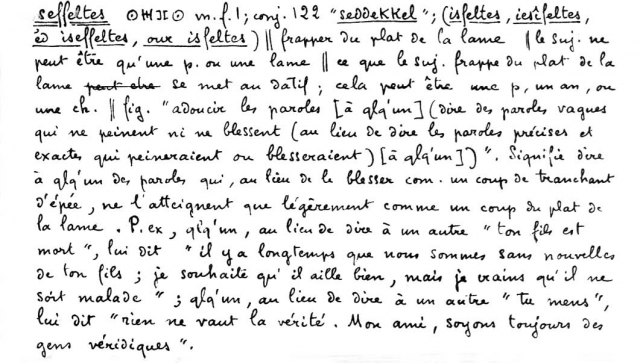 seffeltes ⵙⵀⵍⵜⵙ vn. f. 1; conj. 122 "seddekkel"; (isfeltes, iesîfeltes,
éd iseffeltes, our isfeltes) || frapper du plat de la lame | le suj. ne
peut être qu'une p. ou une lame || ce que le suj. frappe du plat de la
lame se met au datif ; cela peut être une p, un an, ou
une ch. || fig. "adoucir les paroles [à qlq'un] (dire des paroles vagues
qui ne peinent ni ne blessent (au lieu de dire les paroles précises et
exactes qui peineraient ou blesseraient) [à qlq'un])". Signifie dire
à qlq'un des paroles qui, au lieu de le blesser com. un coup de tranchant
d'épée, ne l'atteignent que légèrement comme un coup du plat de
la lame. P. ex, qlq'un, au lieu de dire à un autre "ton fils est
mort", lui dit "il y a longtemps que nous sommes sans nouvelles
de ton fils ; je souhaite qu'il aille bien, mais je crains qu'il ne
soit malade" ; qlq'un, au lieu de dire à un autre "tu mens",
lui dit "rien ne vaut la vérité. Mon ami, soyons toujours des
gens véridiques".